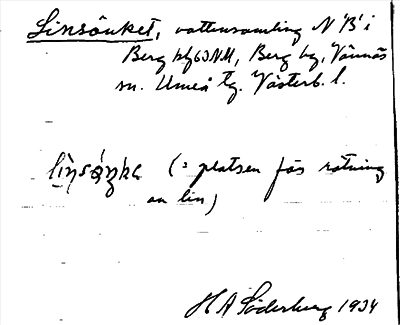 Linsänket, vattensamling N 'B' i
Berg NM, Berg by, Vännäs
sn. Umeå tg. Västerb. l.
(= platsen för rötning
av lin)
H A Söderberg 1934